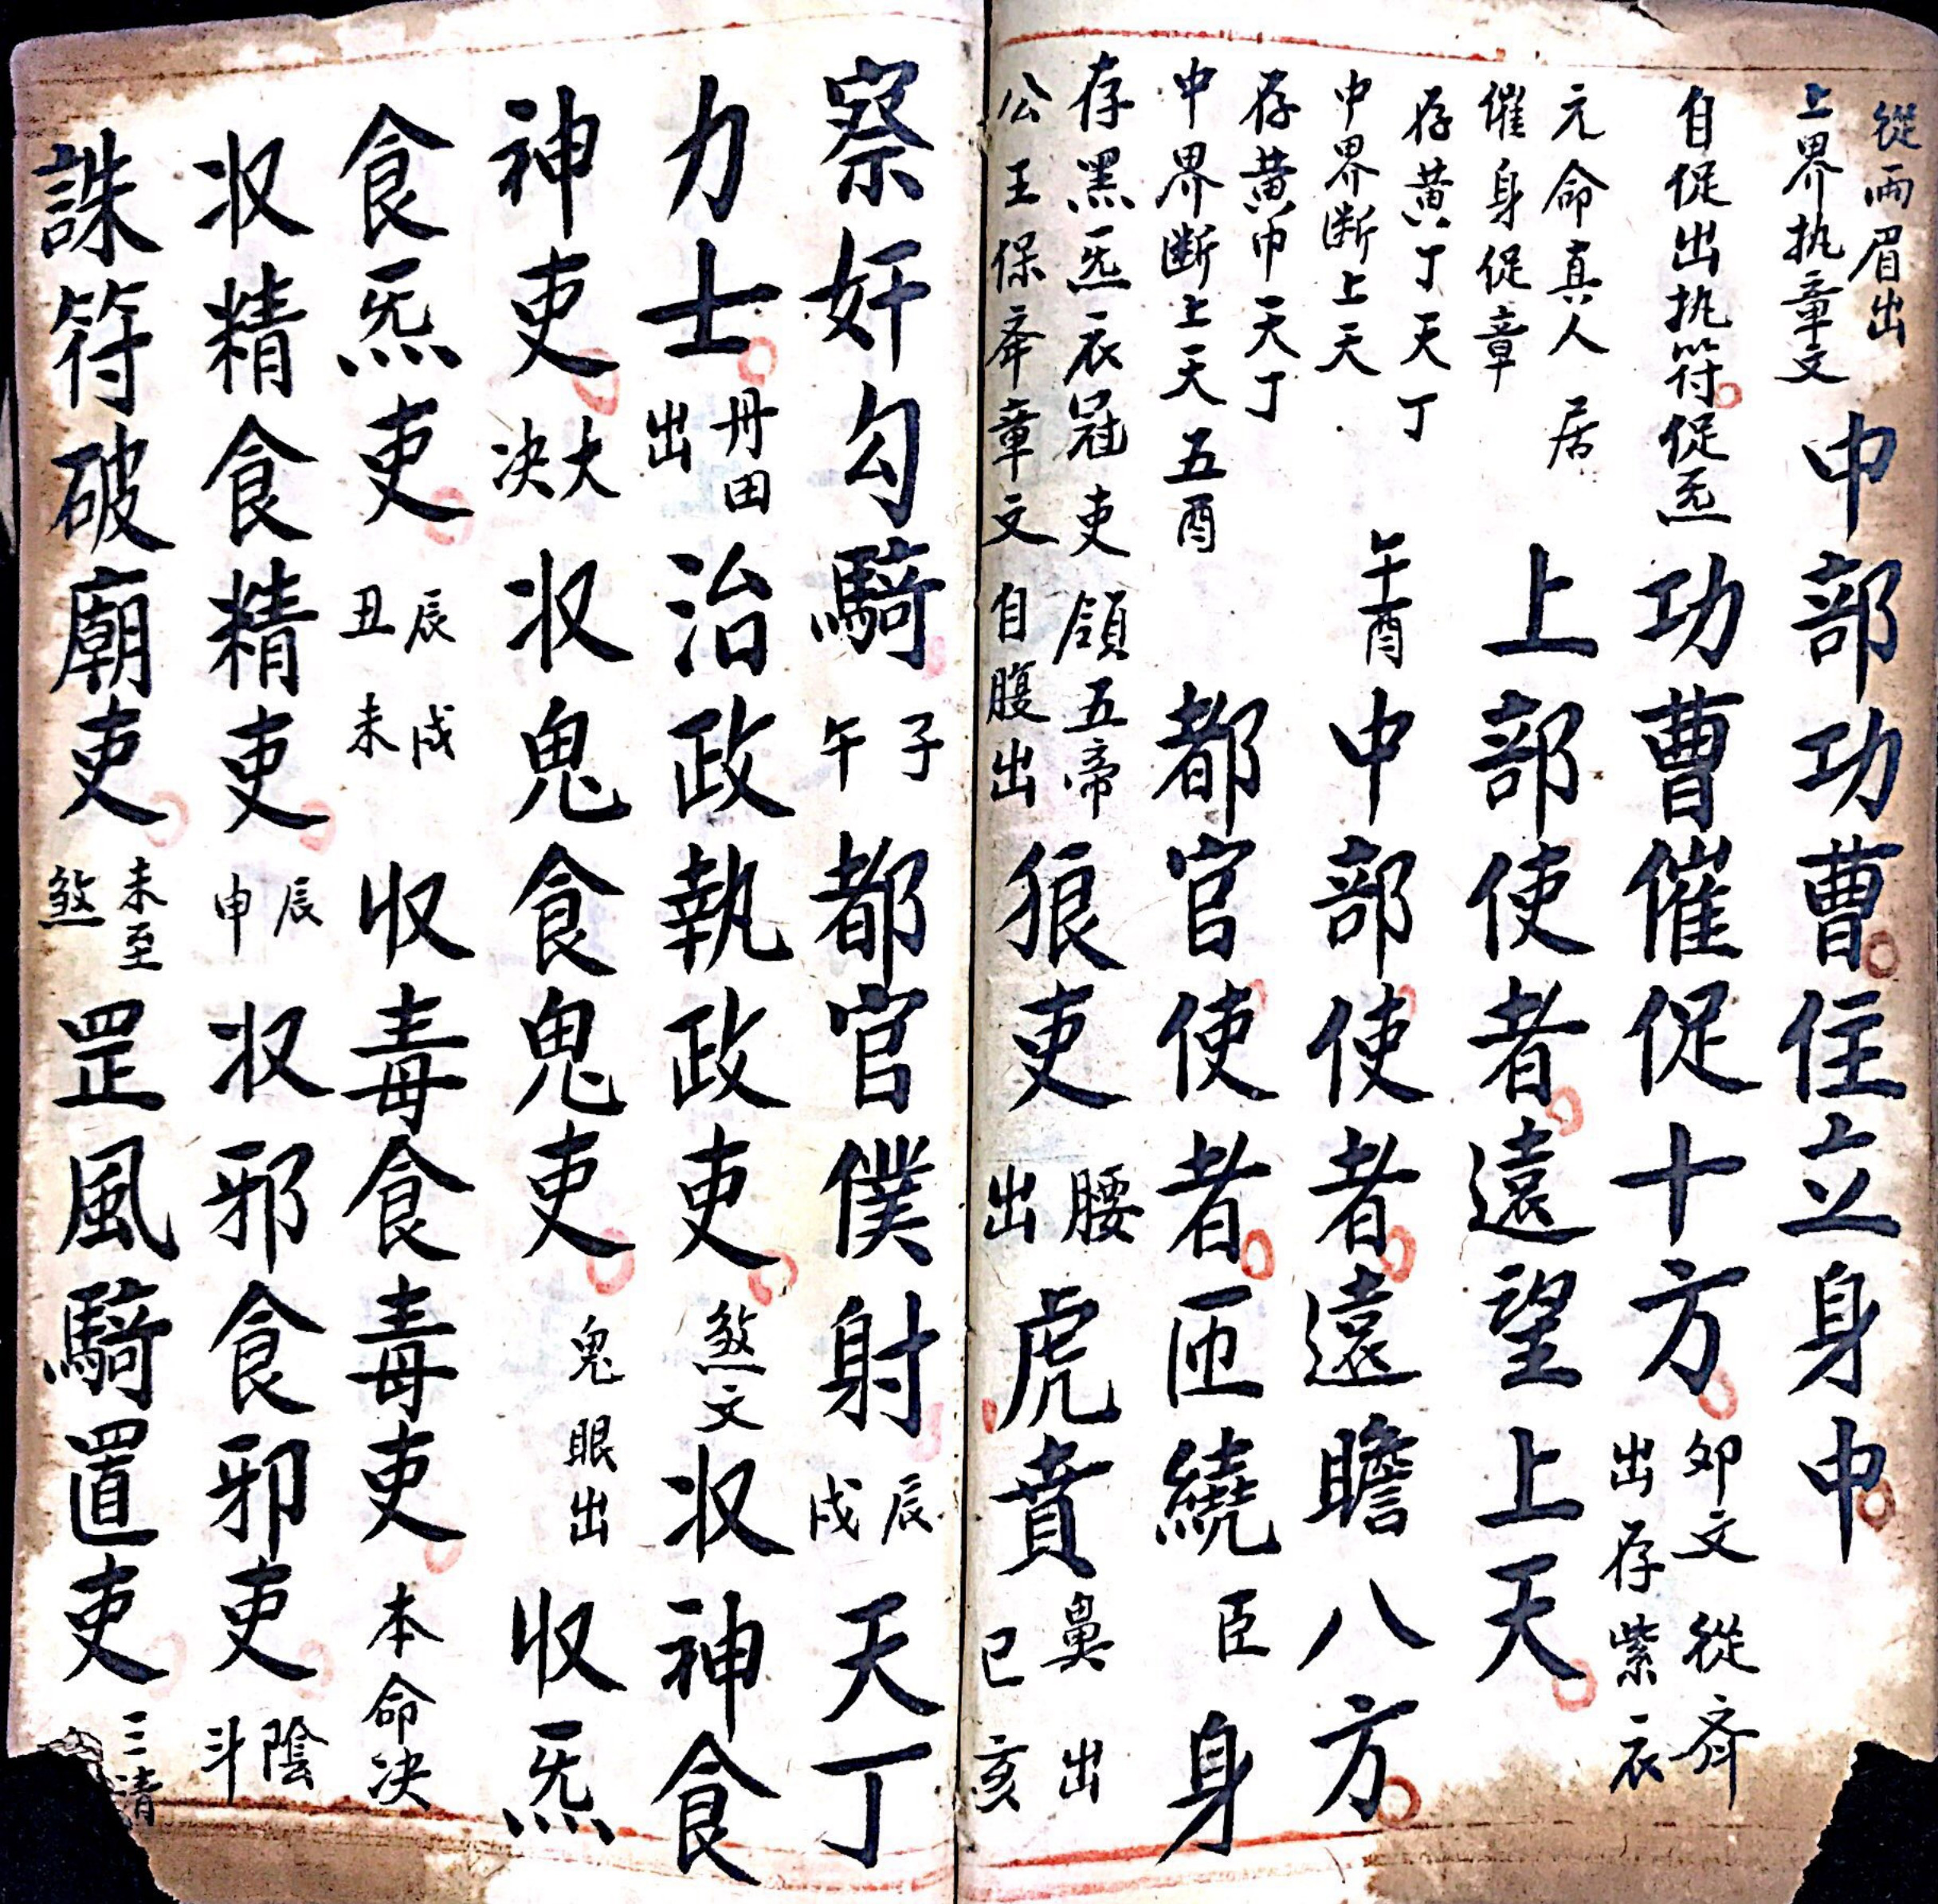 從兩眉出
上界执章文
中部功曹住立身中
自促出执符促炁
功曹催促十方
卯文從齊
出存紫衣
元命真人居
催身促章
上部使者遠望上天
存黄丁天丁
中界断上天
午酉
中部使者遠瞻八方
存黄巾天丁
中界断上天五酉
都官使者匝繞臣身
存黑炁衣冠吏領五帝
公王保奉章文自腹出
狼吏
腰
出
虎賁
鼻出
巳亥
察奸勾騎
子
午
都官僕射
辰
戌
天丁
力士
丹田
出
治政執政吏
煞文
収神食
神吏
大
决
収鬼食鬼吏
鬼眼出
收炁
食炁吏
辰戌
丑未
收毒食毒吏
本命决
収精食精吏
辰
申
収邪食邪吏
陰
斗
誅符破廟吏
未至
煞
罡風騎置吏
三清